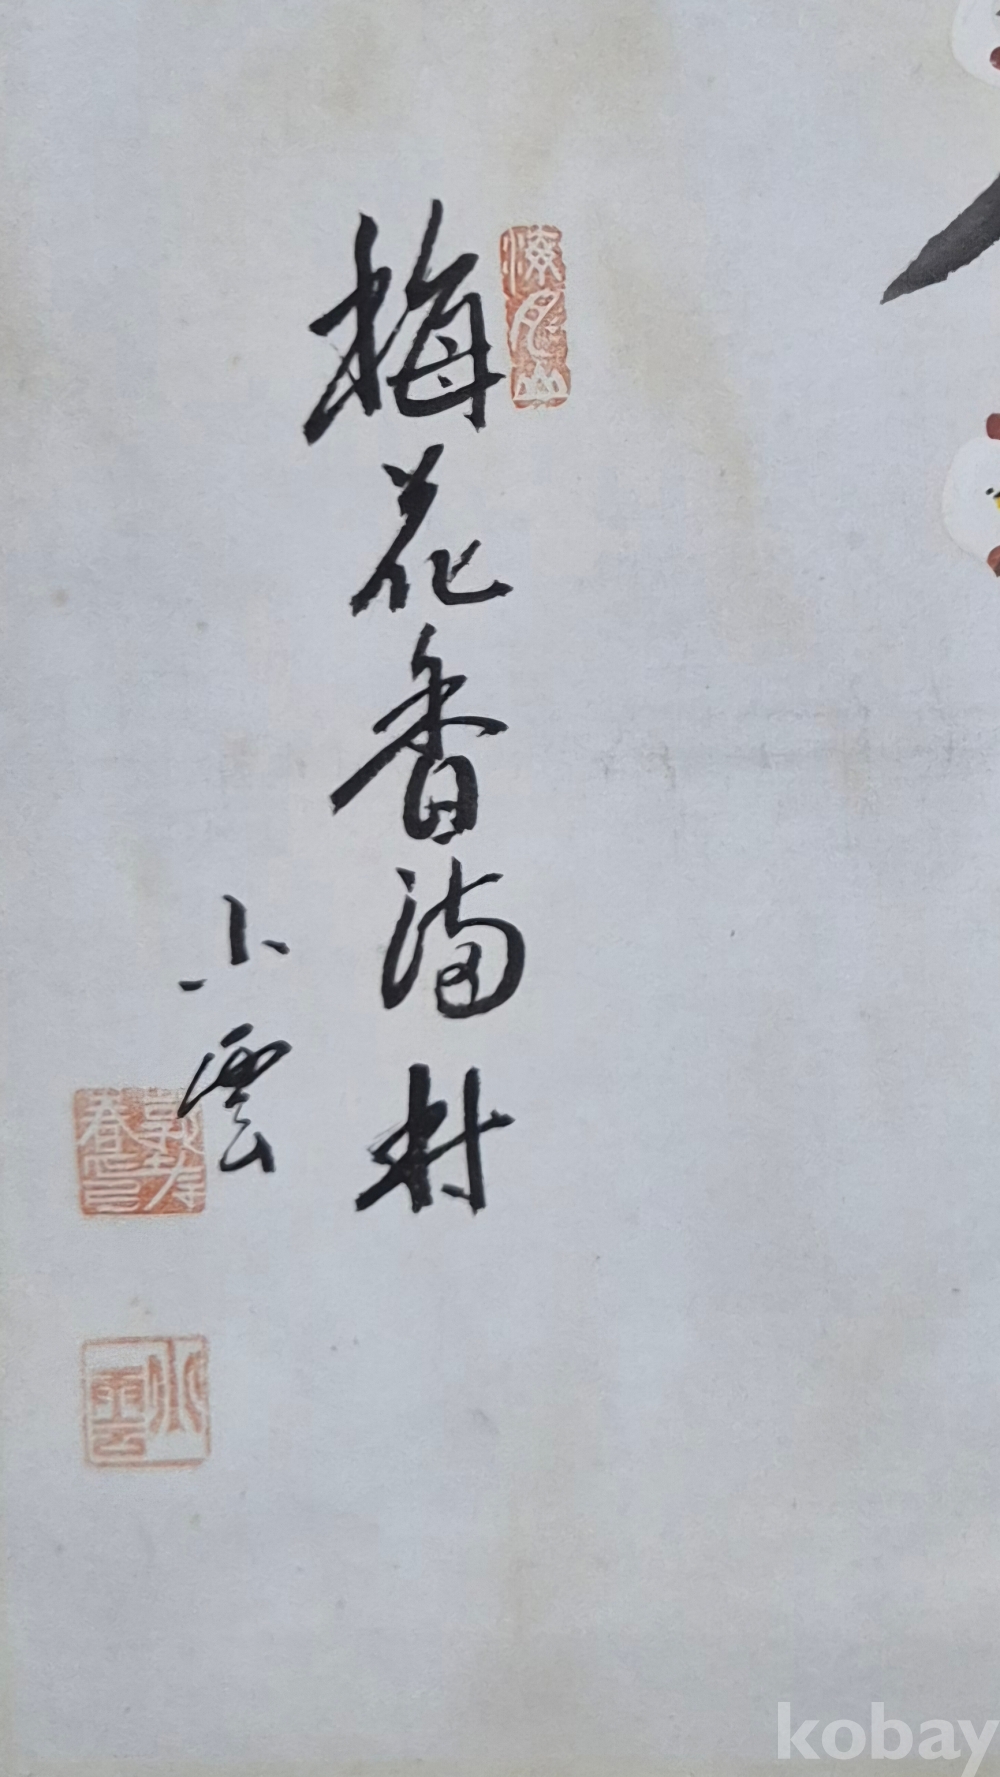 梅花香滿村
小雲
小雲
kobay